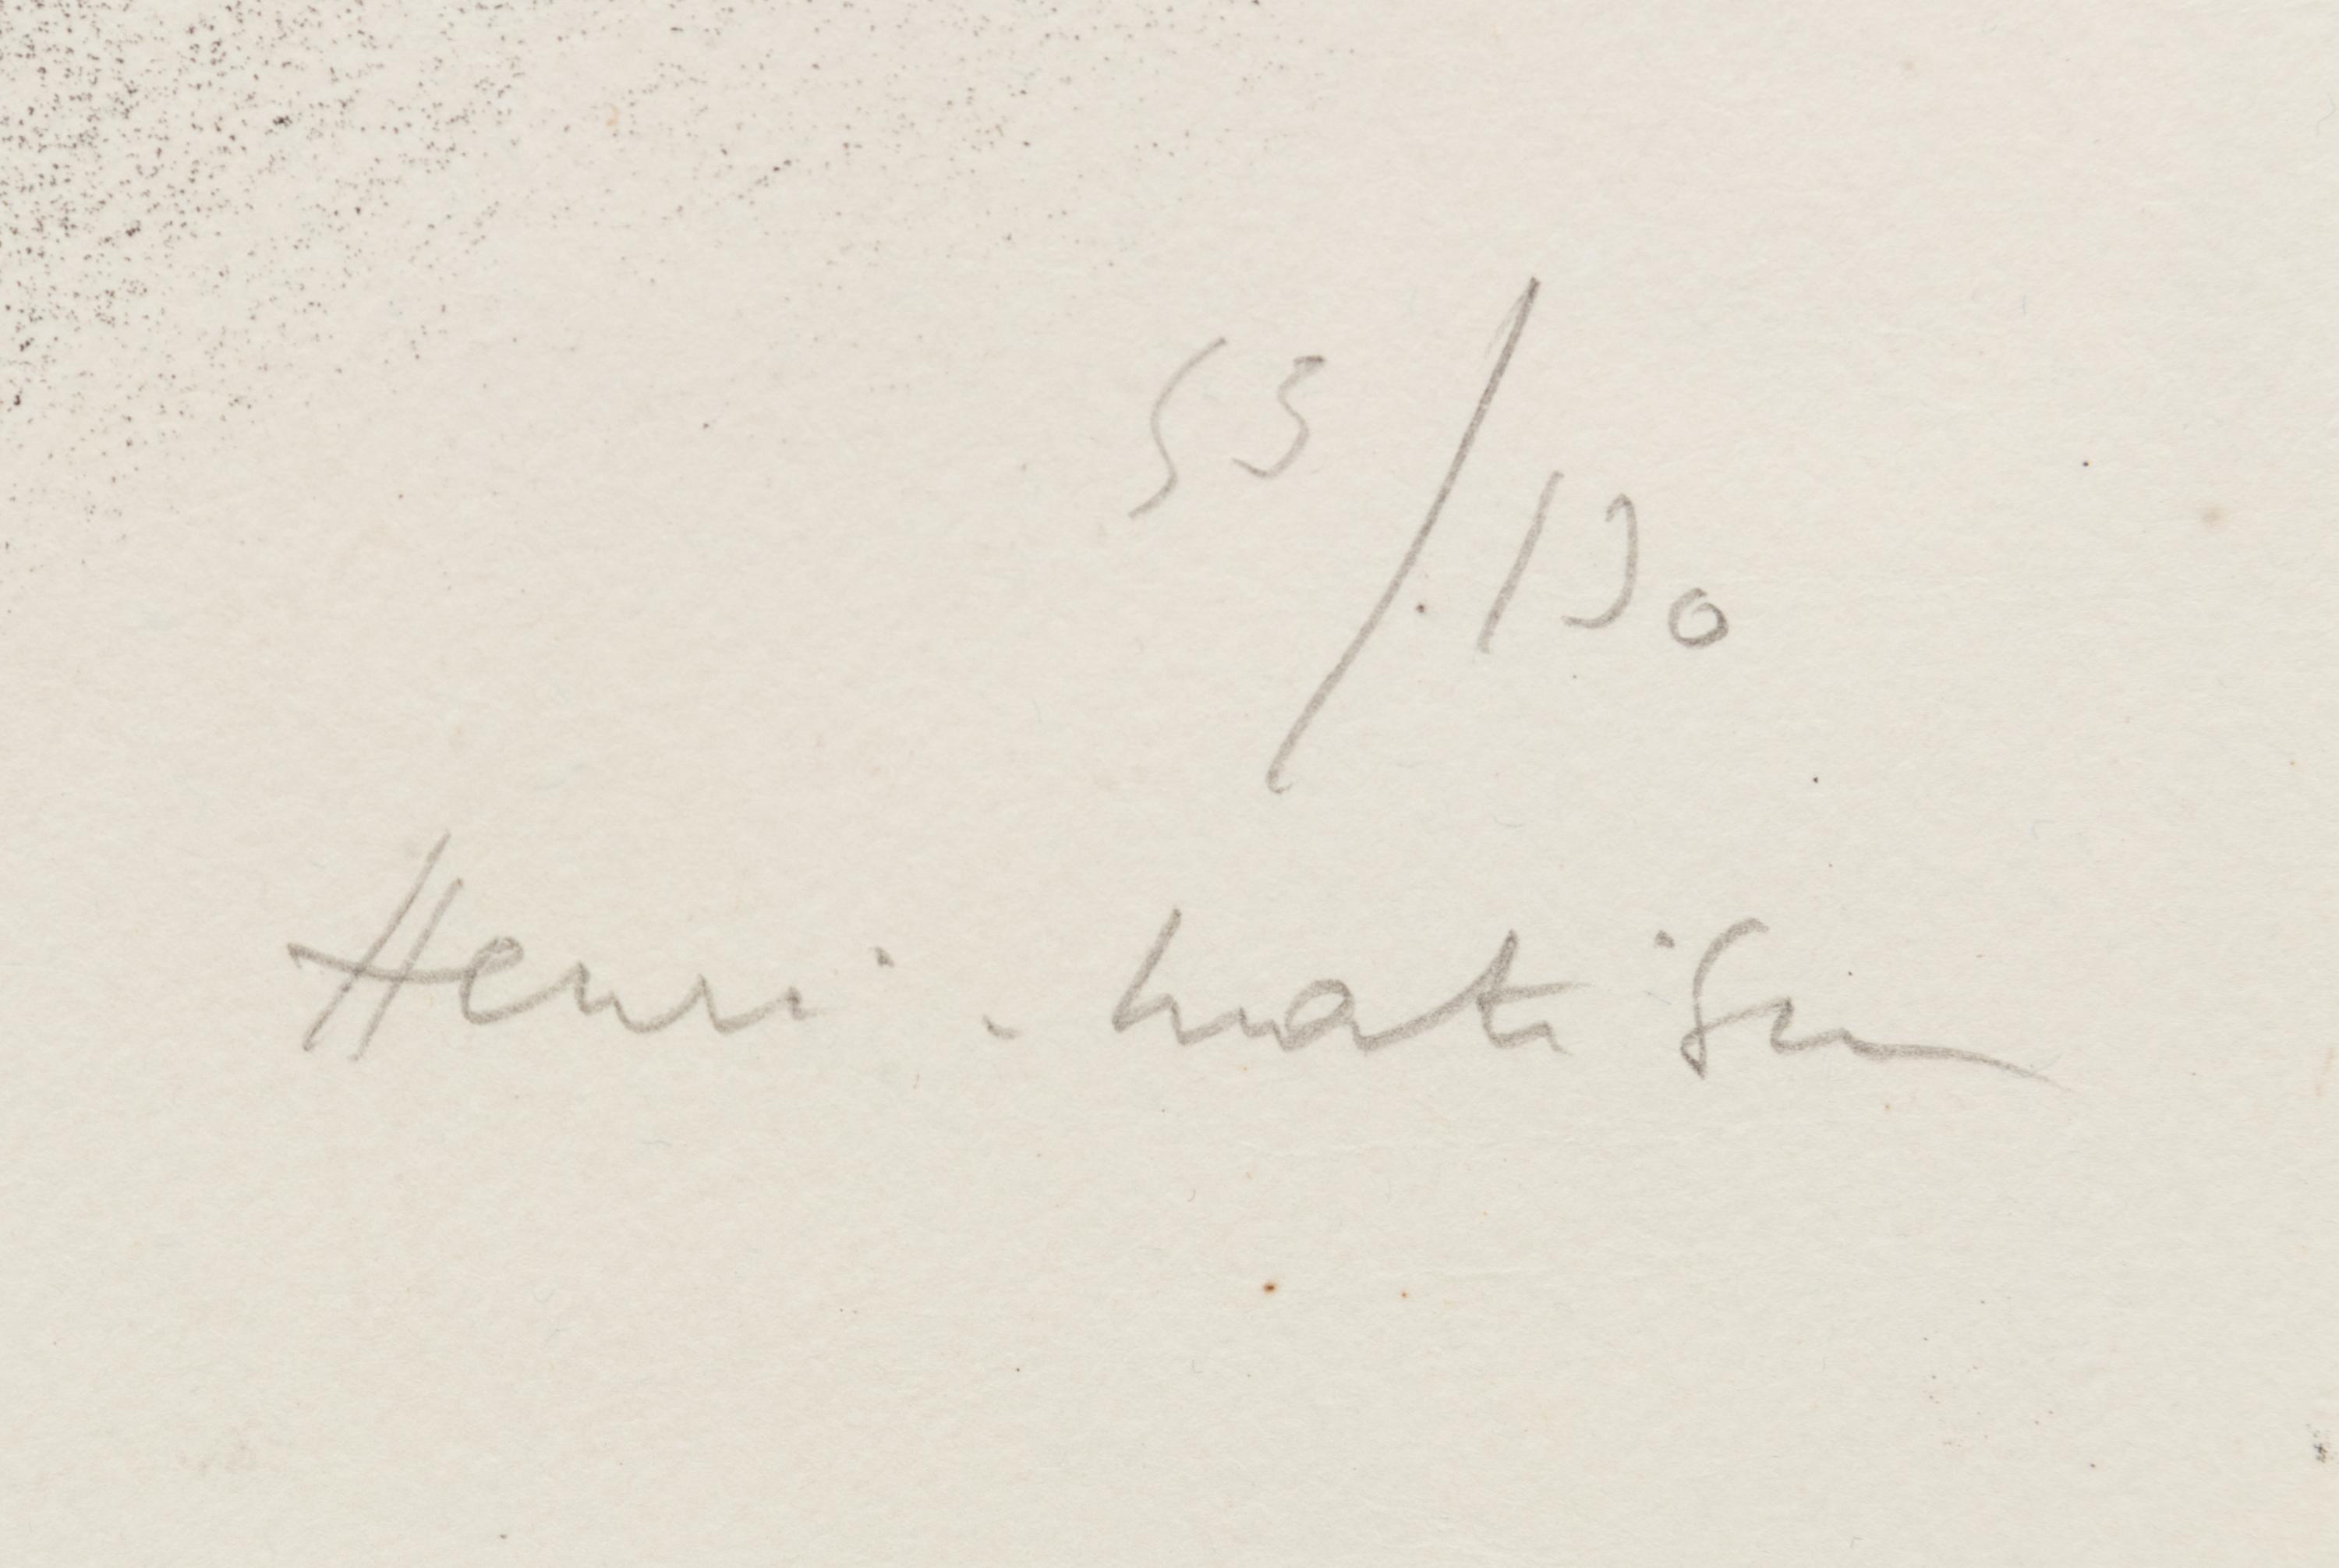 53/130
Henri. Matisse